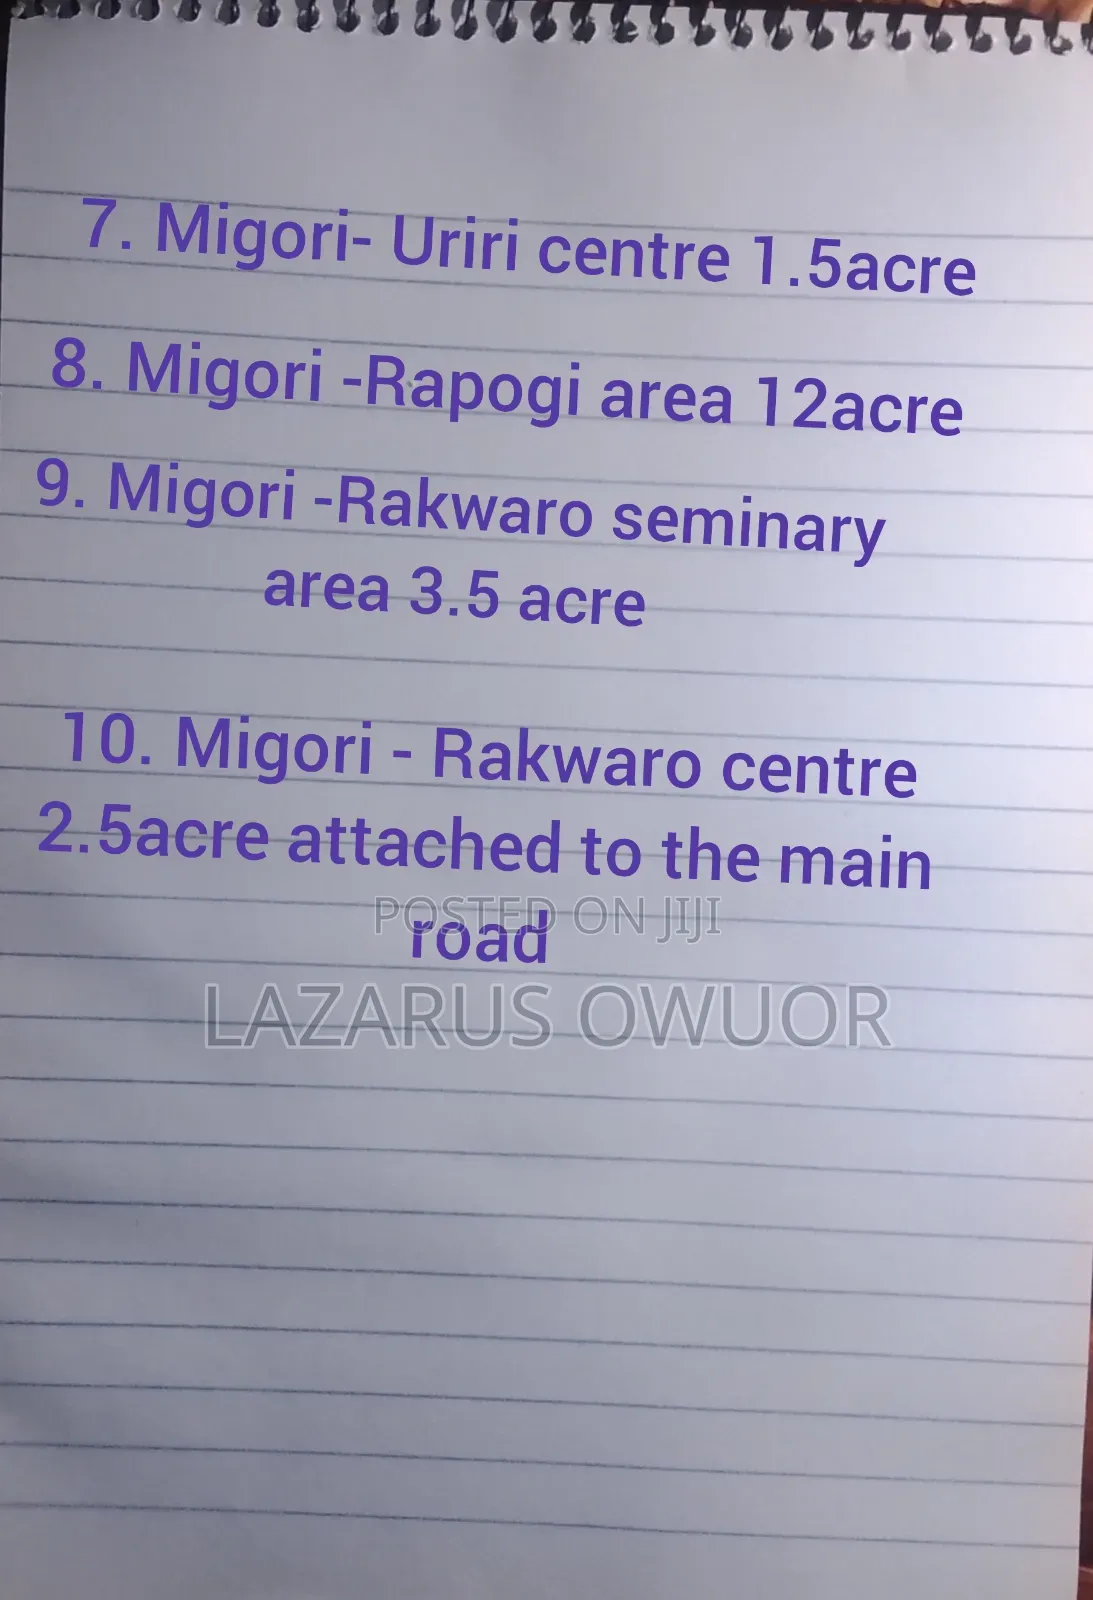 7. Migori- Uriri centre 1.5acre
8. Migori -Rapogi area 12acre
9. Migori -Rakwaro seminary
area 3.5 acre
10. Migori - Rakwaro centre
2.5acre attached to the main
road
POSTED ON JIJI
LAZARUS OWUOR